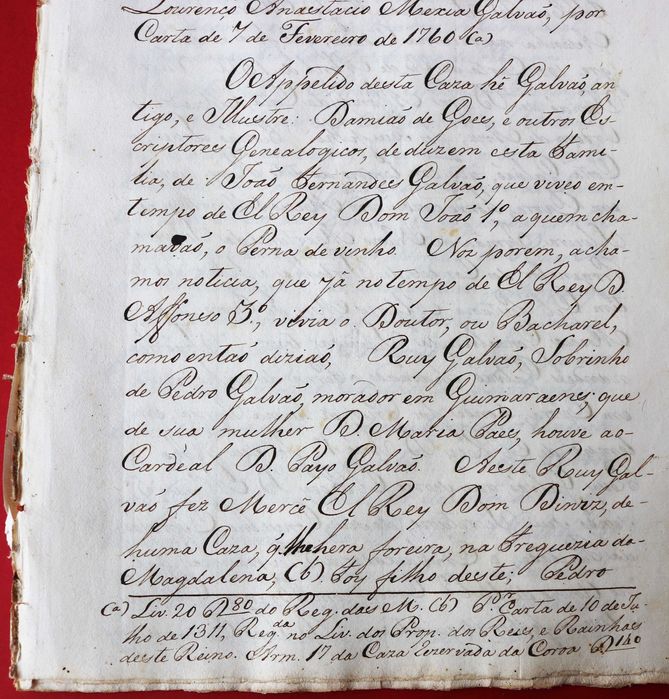 Lourenço Anastacio Mexia Galvaõ, por
Carta de 7 de Fevereiro de 1760 (a)
O Appelido desta Caza hê Galvaõ, an-
tigo, e Illustre: Damiaõ de Goes, e outros Es-
criptores Genealogicos, deduzem esta Fami-
lia, de Joaõ Fernandes Galvaõ, que viveo em-
tempo de El Rey Dom Joaõ 1º, a quem cha-
mavaõ, o Perna de vinho. Noz porem, acha-
mos noticia, que já no tempo de El Rey D.
Affonso 3º, vivia o Doutor, ou Bacharel,
como entaõ diziaõ, Ruy Galvaõ, Sobrinho
de Pedro Galvaõ, morador em Guimaraens, que
de sua mulher D. Maria Paes, houve ao-
Cardêal D. Payo Galvaõ. A este Ruy Gal-
vaõ fez Mercê El Rey Dom Diniz, de-
huma Caza, q̃ lhe hera foreira, na Freguezia da-
Magdalena, (b). Foy filho deste; Pedro
(a) Liv. 20 80 do Reg. das M. (b) P.r Carta de 10 de Ju-
lho de 1311, Reg.da no Liv. dos Prop. dos Reis, e Rainhas
deste Reino. Arm. 17 da Caza rezervada da Coroa 140